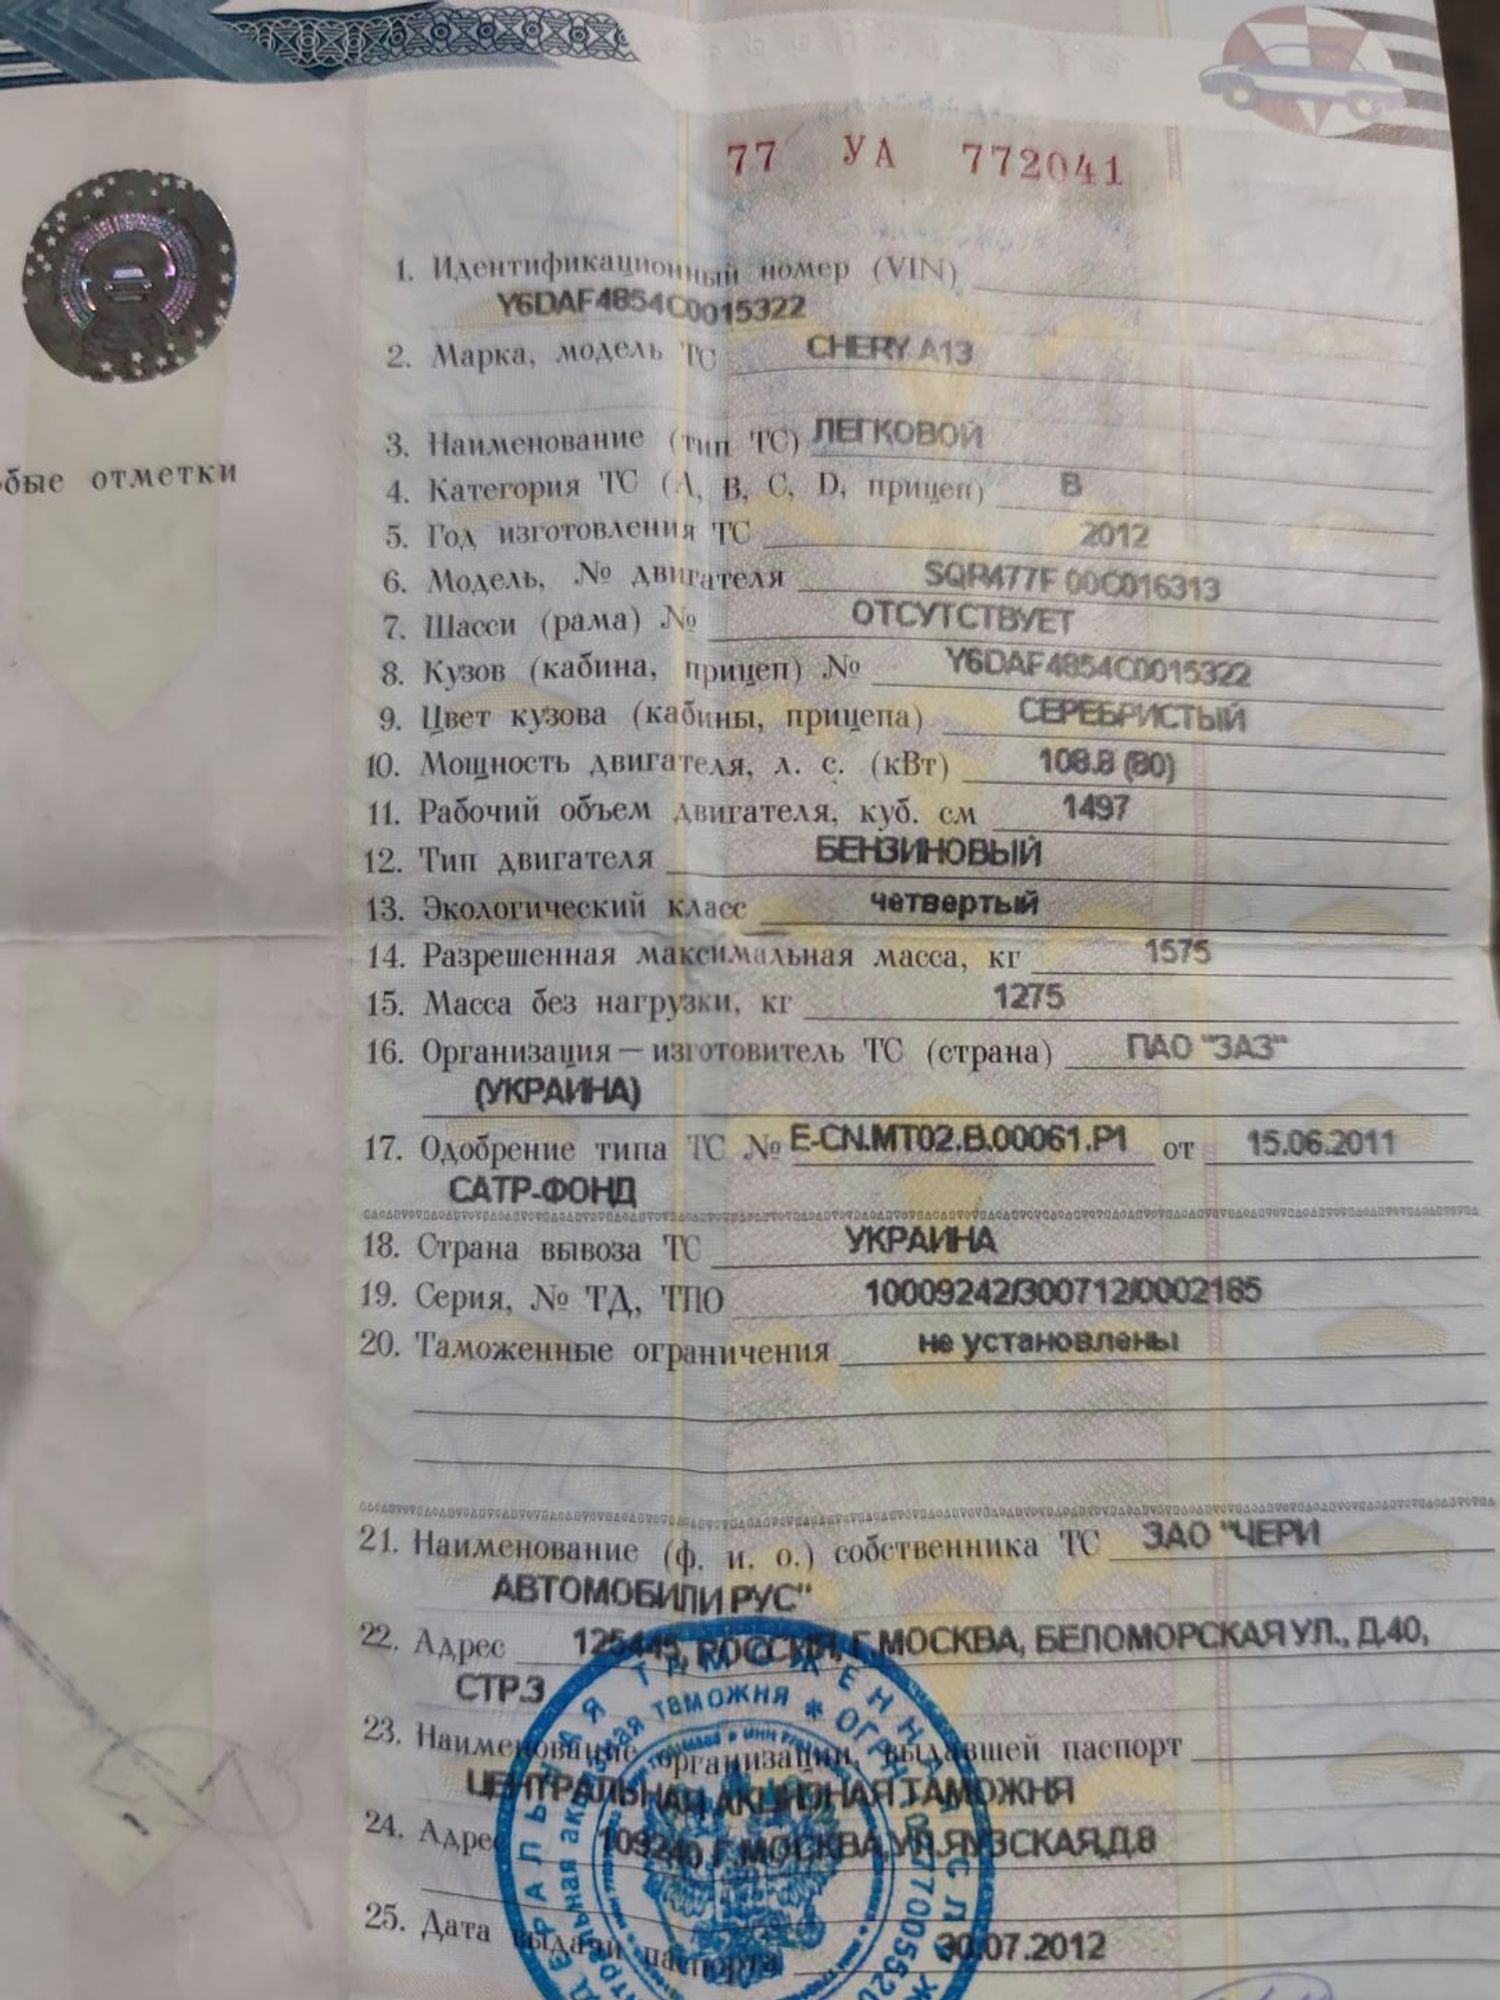 77 УА 772041
1. Идентификационный номер (VIN)
Y6DAF4854C0015322
2. Марка, модель ТС CHERY A13
3. Наименование (тип ТС) ЛЕГКОВОЙ
бые отметки
4. Категория ТС (А, В, С, D, прицеп) В
5. Год изготовления ТС 2012
6. Модель, № двигателя SQR477F 00C016313
7. Шасси (рама) № ОТСУТСТВУЕТ
8. Кузов (кабина, прицеп) № Y6DAF4854C0015322
9. Цвет кузова (кабины, прицепа) СЕРЕБРИСТЫЙ
10. Мощность двигателя, л. с. (кВт) 108.8 (80)
11. Рабочий объем двигателя, куб. см 1497
12. Тип двигателя БЕНЗИНОВЫЙ
13. Экологический класс четвертый
14. Разрешенная максимальная масса, кг 1575
15. Масса без нагрузки, кг 1275
16. Организация — изготовитель ТС (страна) ПАО "ЗАЗ"
(УКРАИНА)
17. Одобрение типа ТС № E-CN.MT02.B.00061.P1 от 15.06.2011
САТР-ФОНД
18. Страна вывоза ТС УКРАИНА
19. Серия, № ТД, ТПО 10009242/300712/0002185
20. Таможенные ограничения не установлены
21. Наименование (ф. и. о.) собственника ТС ЗАО "ЧЕРИ
АВТОМОБИЛИ РУС"
22. Адрес 125445, РОССИЯ, Г.МОСКВА, БЕЛОМОРСКАЯ УЛ., Д.40,
СТР.3
23. Наименование организации, выдавшей паспорт
ЦЕНТРАЛЬНАЯ АКЦИЗНАЯ ТАМОЖНЯ
24. Адрес 109240, Г.МОСКВА,УЛ.ЯУЗСКАЯ,Д.8
25. Дата выдачи паспорта 30.07.2012